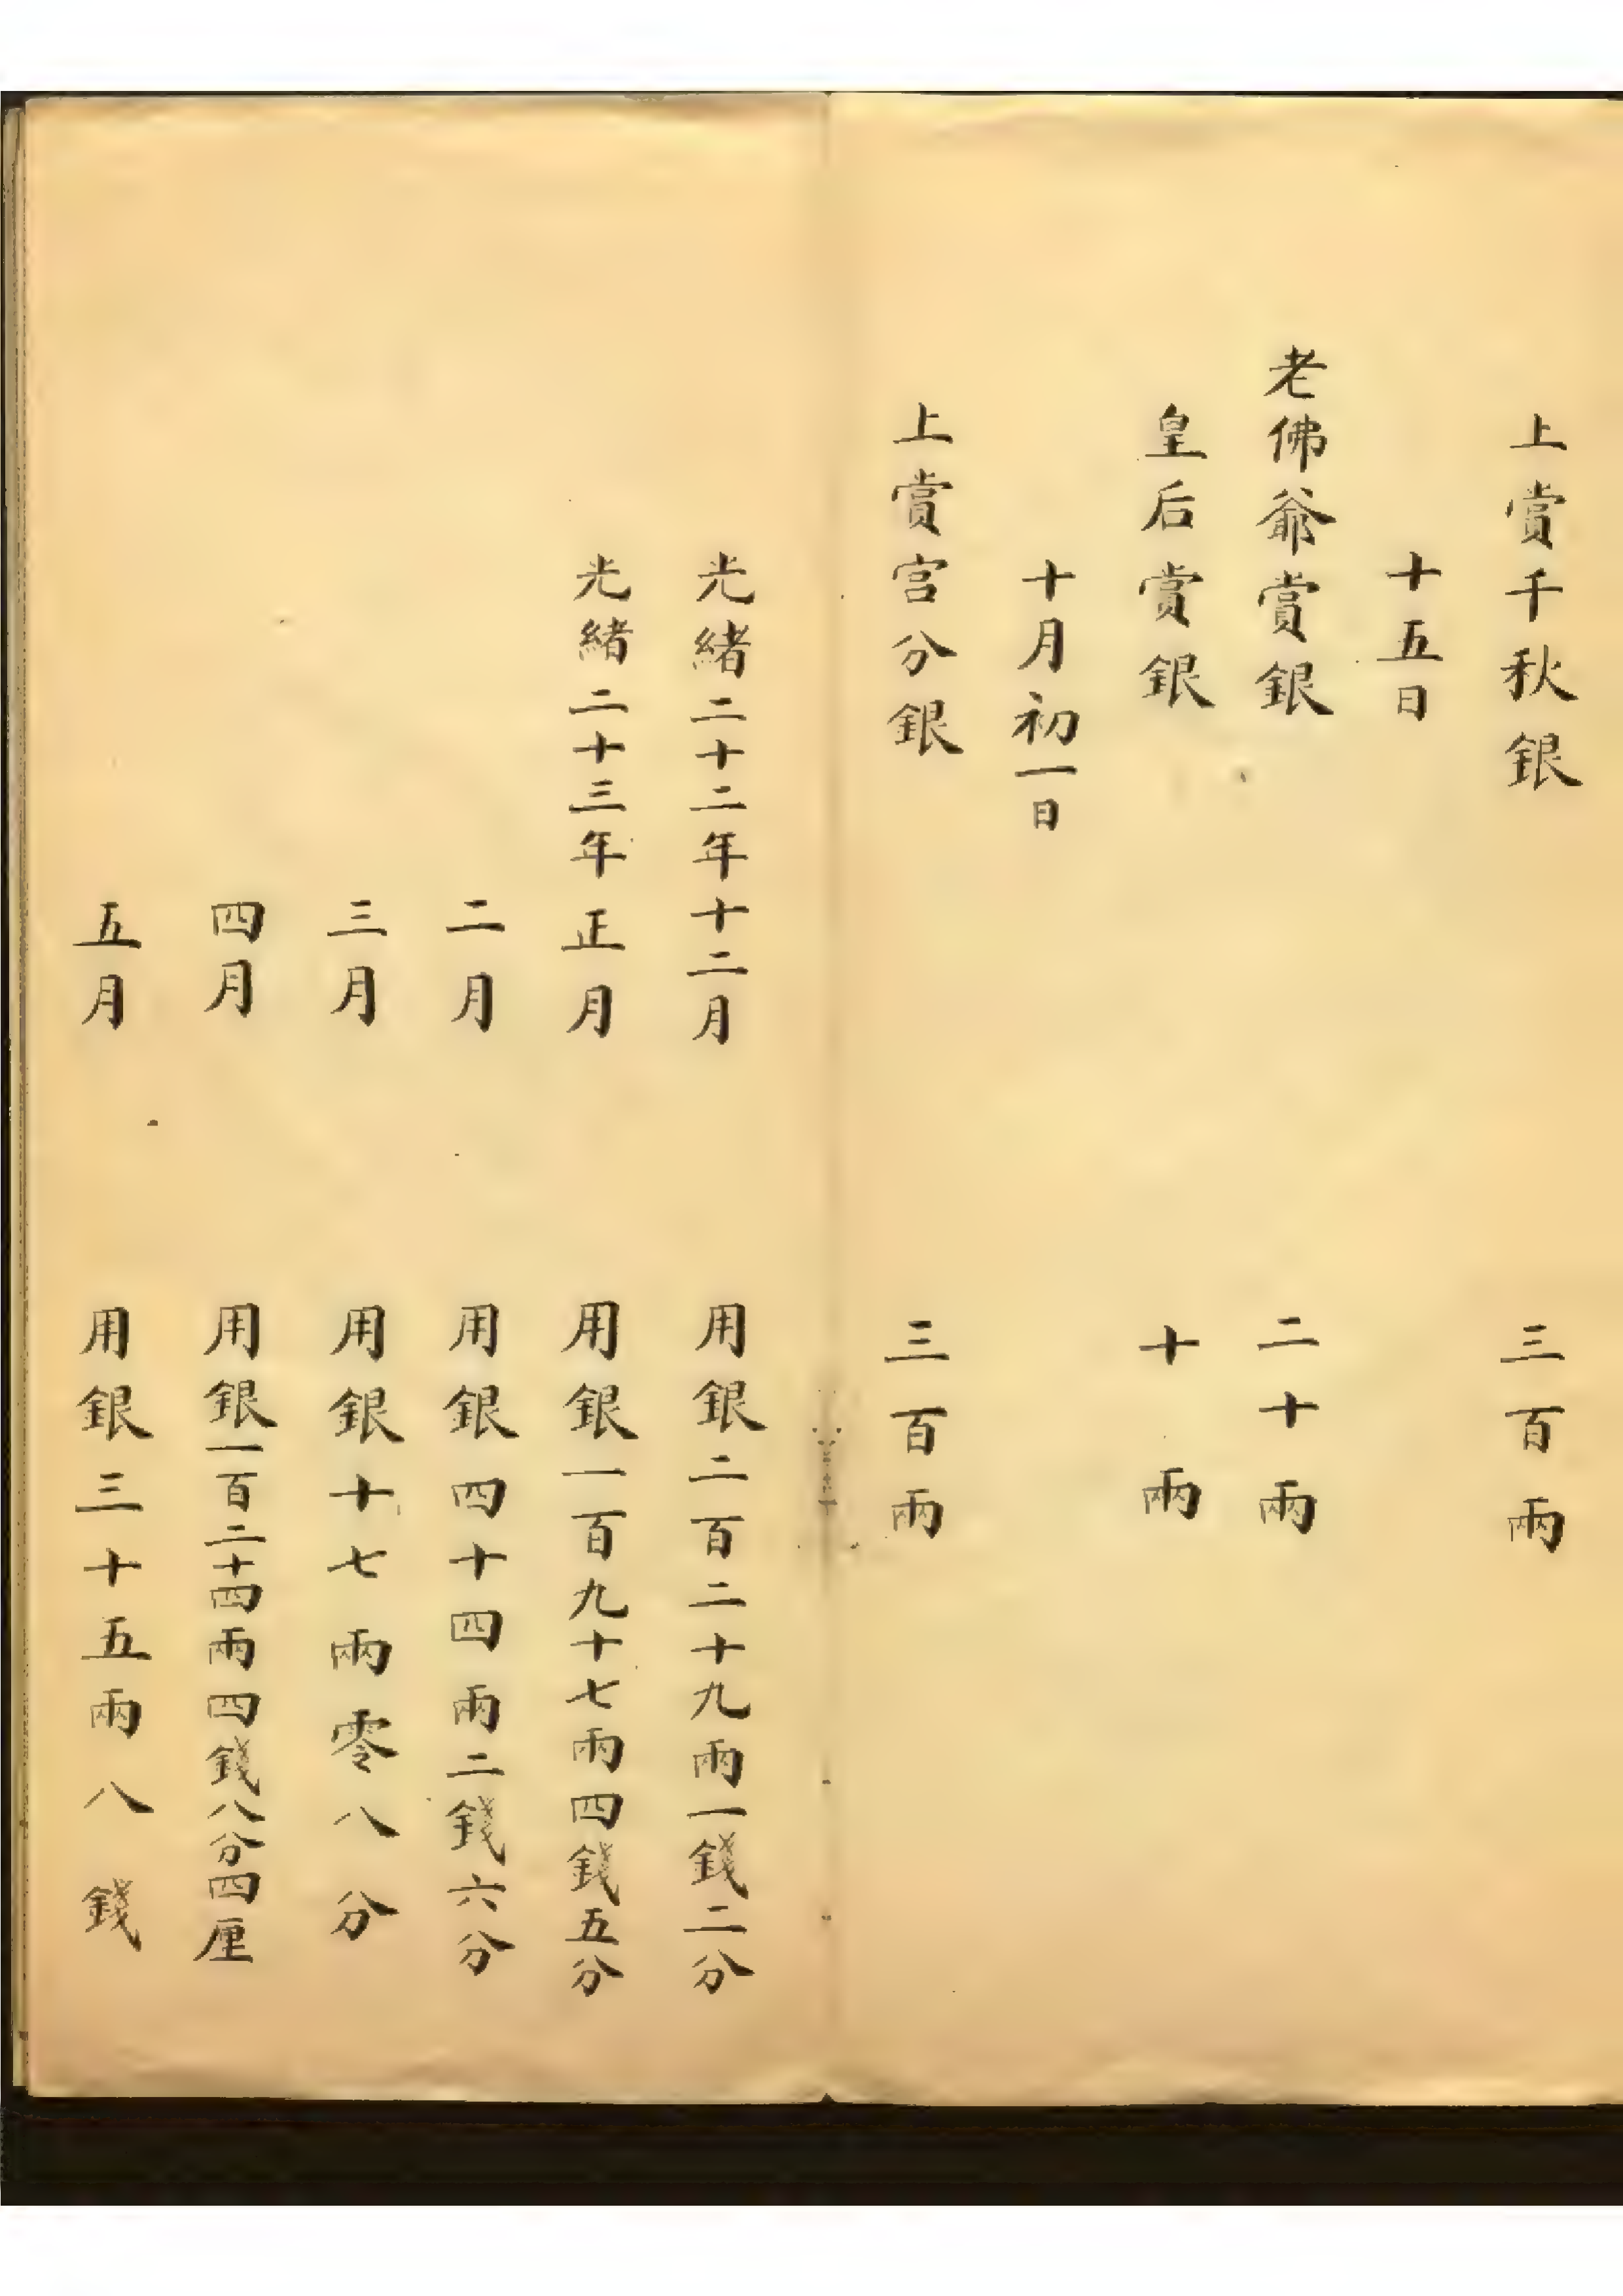 上賞千秋銀 三百兩
十五日
老佛爺賞銀 二十兩
皇后賞銀 十兩
十月初一日
上賞宫分銀 三百兩
光緒二十二年十二月 用銀二百二十九兩一錢二分
光緒二十三年正月 用銀一百九十七兩四錢五分
二月 用銀四十四兩二錢六分
三月 用銀十七兩零八分
四月 用銀一百二十四兩四錢八分四厘
五月 用銀三十五兩八錢